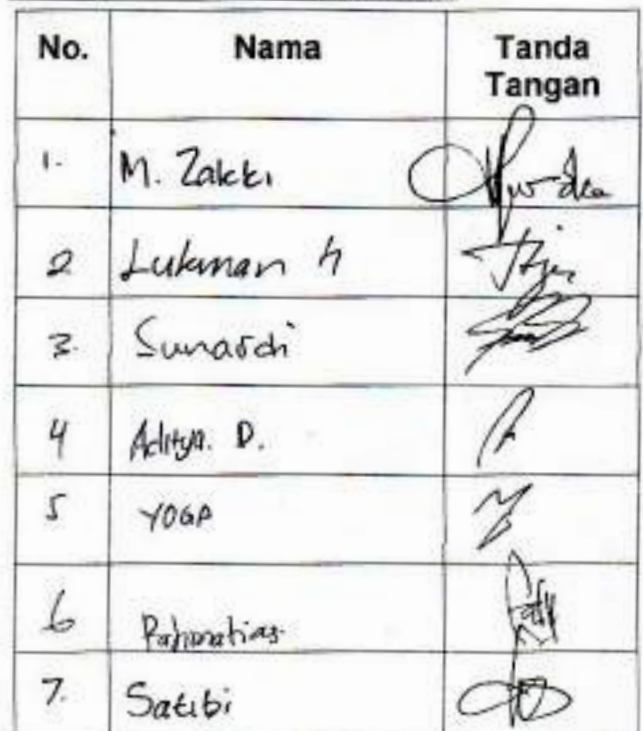 No. Nama Tanda Tangan
1. M. Zakki
2 Lukman H
3. Sunardi
4 Aditya. D.
5 YOGA
6
7. Satibi